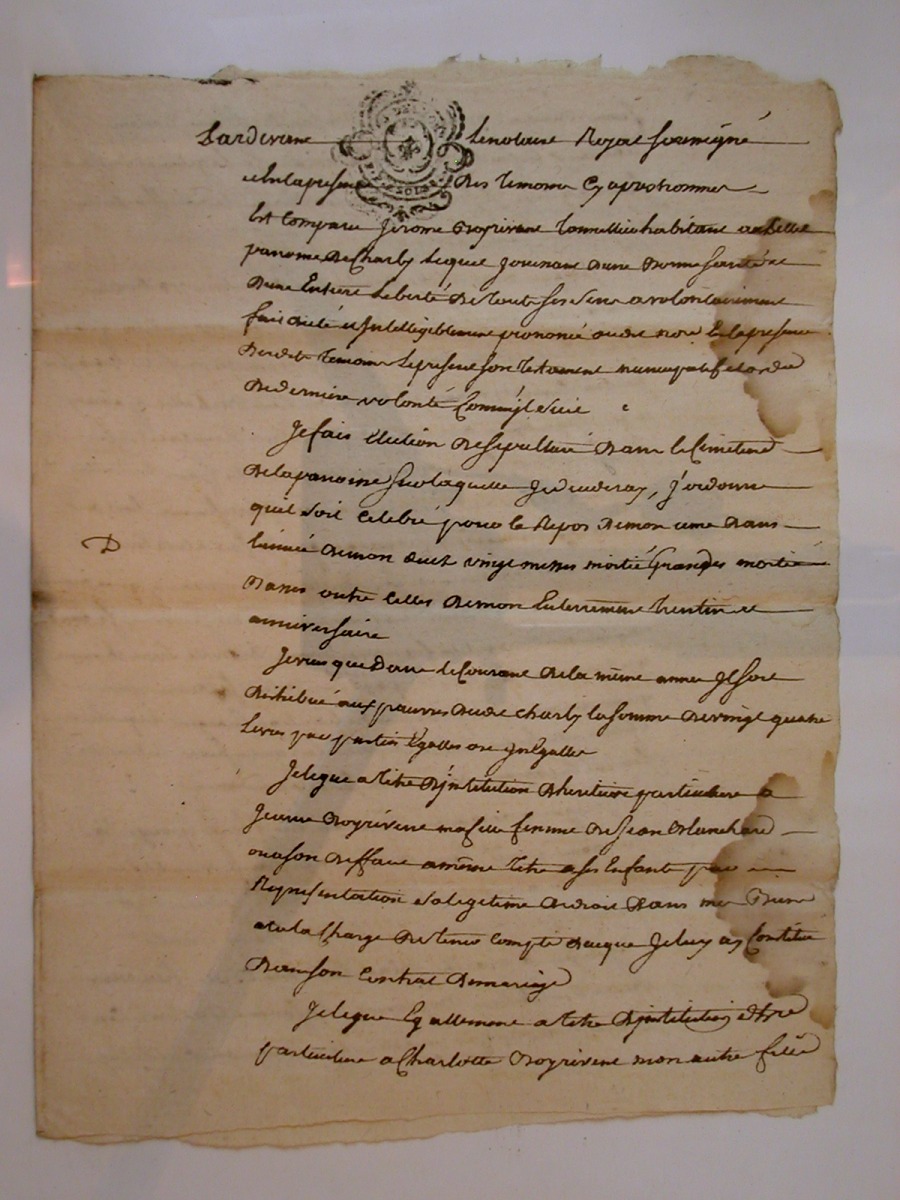 Pardevant le notaire Royal soussigné
et en la presence des temoins cy apres nommés
Est comparu jerome Boyrivent habitant
paroisse de Charly lequel jouissant d'une bonne santé et
d'une Entiere Liberté de tous ses sens a volontairement
fait dicté et Intelligiblement prononcé audit not.re En la presence
desdits temoins le present son testament nuncupatif et ordre
de derniere volonté Comme s'ensuit
Je fais Election de sepulture dans le Cimetiere
de la paroisse sur laquelle je decederay, j'ordonne
quil soit Celebré pour le Repos de mon ame dans
l'année de mon decez vingt messes moitié Grandes moitié
basses outre celles de mon Enterrement trentin et
anniversaire
Je veux que dans le Courant de la même année Il soit
distribué aux pauvres dudit Charly la somme de vingt quatre
Livres par parties Egalles ou InEgalles
Je legue a titre D'jnstitution d'heritiere particuliere a
Jeanne Boyrivent ma fille femme de Jean Blanchard
ou a son deffaut a même titre a ses Enfants par
Representation sa legitime de droit dans mes Biens
a la Charge de tenir Compte de ce que Je luy ay Constitué
dans son Contrat de mariage
Je legue Egallement a titre D'jnstitution
particuliere a Charlotte Boyrivent mon autre fille